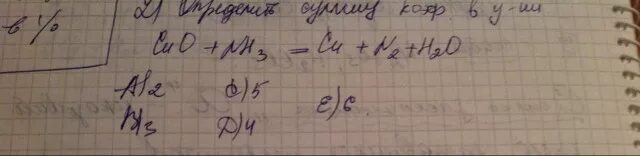 2) Определить сумму коэф. в у-ии
в %
CuO + NH3 = Cu + N2 + H2O
A)2 C)5 E)6
B)3 D)4